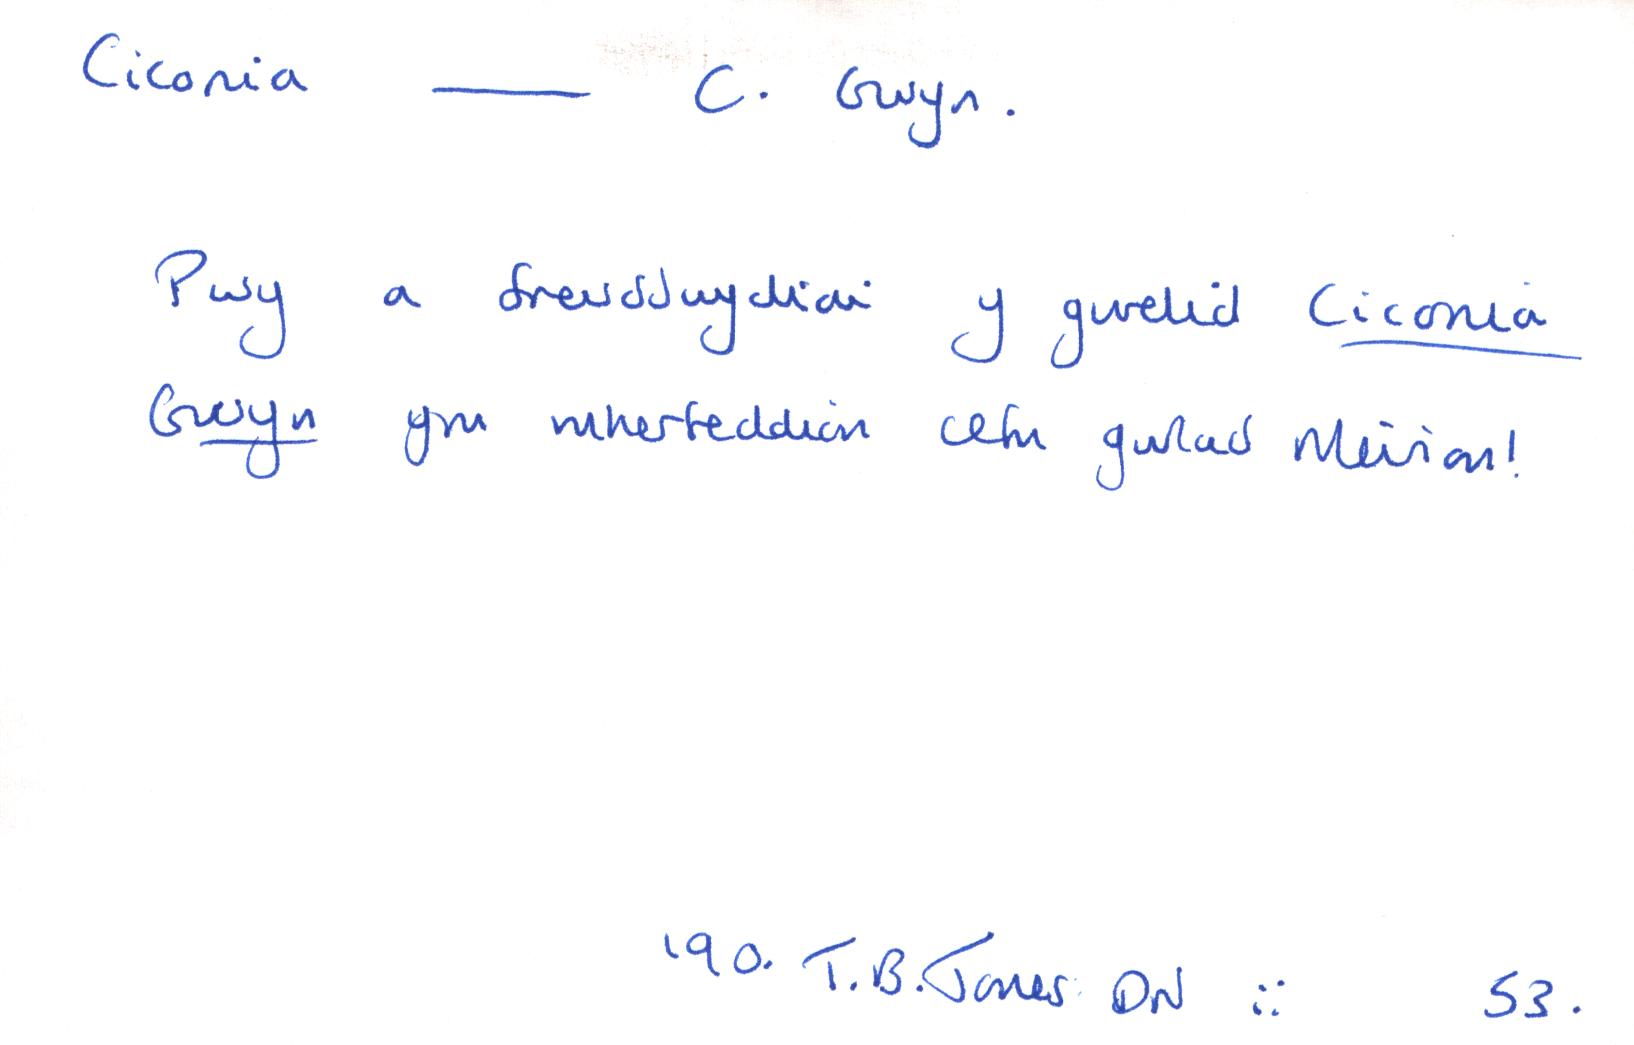 Ciconia — C. Gwyn.
Pwy a freuddwydiai y gwelid Ciconia
Gwyn ym mherfeddion cefn gwlad Meirion!
'90. T.B. Jones DN :: 53.